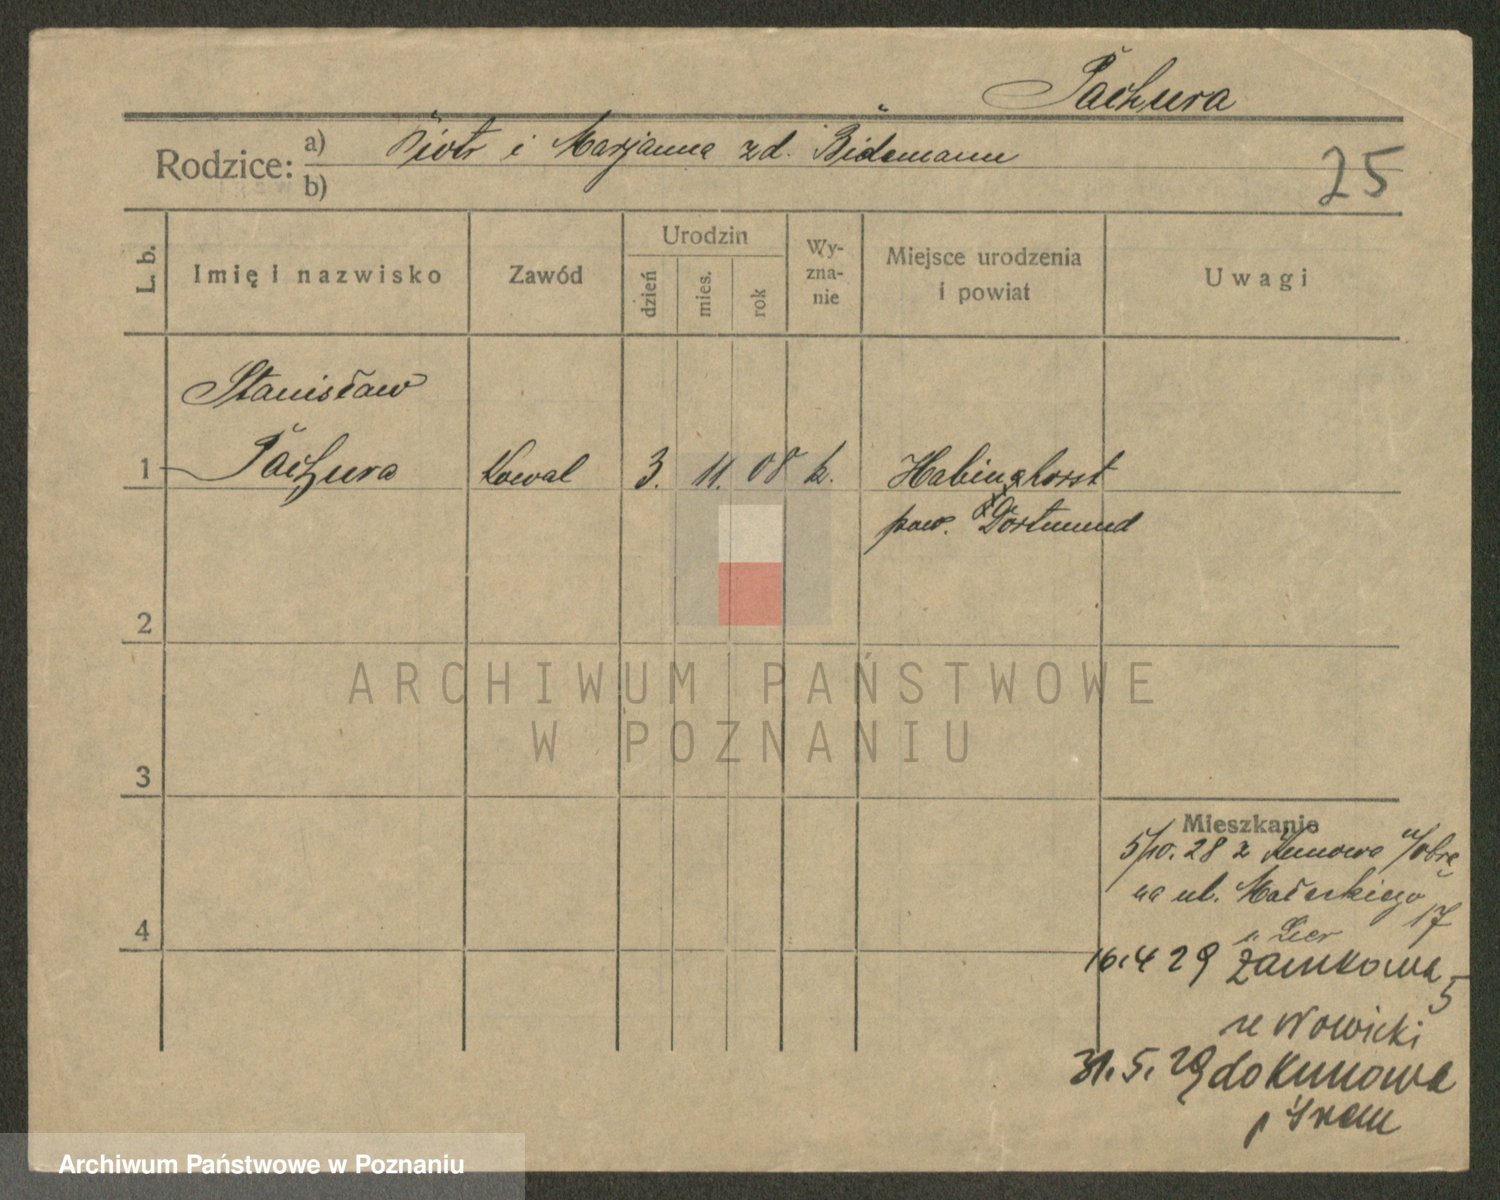 Pachura
Rodzice: a) Piotr i Marjanna zd. Bidemann
b)
25
L. b.
Imię i nazwisko
Zawód
Urodzin
dzień
mies.
rok
Wy-
zna-
nie
Miejsce urodzenia
i powiat
Uwagi
Stanisław
1 Pachura Kowal 3. 11. 08 k. Habinghorst
pow. Dortmund
2
3
4
ARCHIWUM PAŃSTWOWE
W POZNANIU
Mieszkanie
5/10. 28 z Kunowa n/Obrą
na ul. Małeckiego
17
16.4 29 Zamkowa
5
u Nowicki
31.5.29 do Kunowa
p Śrem
Archiwum Państwowe w Poznaniu